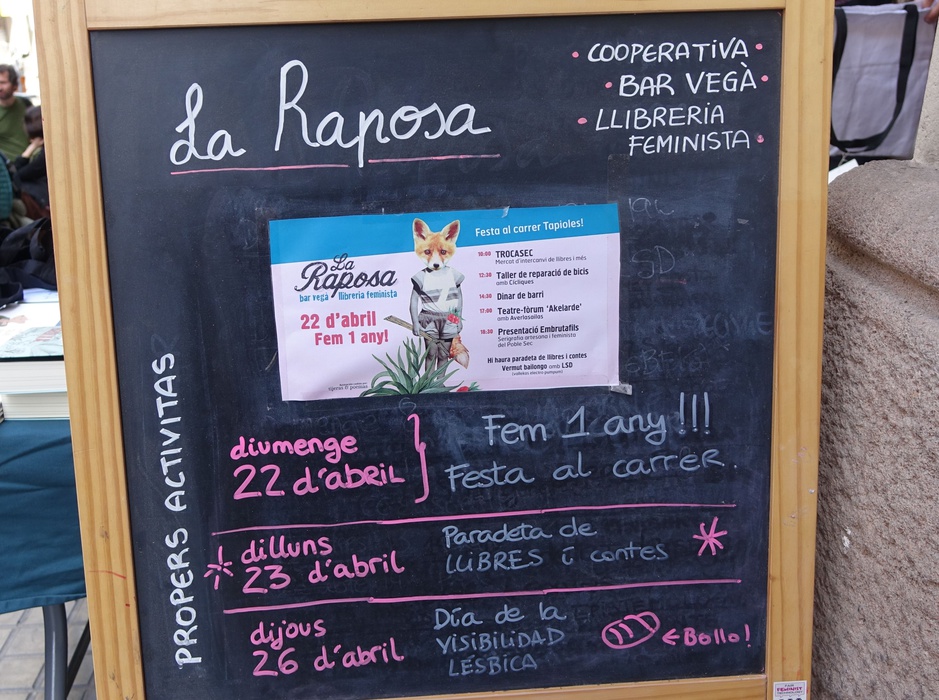 La Raposa
• COOPERATIVA •
• BAR VEGÀ •
• LLIBRERIA
FEMINISTA •
Festa al carrer Tapioles!
La
Raposa
bar vegà llibreria feminista
22 d'abril
Fem 1 any!
10:00 TROCASEC
Mercat d'intercanvi de llibres i més
12:30 Taller de reparació de bicis
amb Cícliques
14:30 Dinar de barri
17:00 Teatre-fòrum 'Akelarde'
amb Averlasailas
18:30 Presentació Embrutafils
Serigrafia artesana i feminista
del Poble Sec
Hi haura paradeta de llibres i contes
Vermut bailongo amb LSD
PROPERS ACTIVITAS
diumenge
22 d'abril
Fem 1 any!!!
Festa al carrer.
dilluns
23 d'abril
Paradeta de
LLIBRES i contes
dijous
26 d'abril
Día de la
VISIBILIDAD
LÉSBICA
←Bollo!